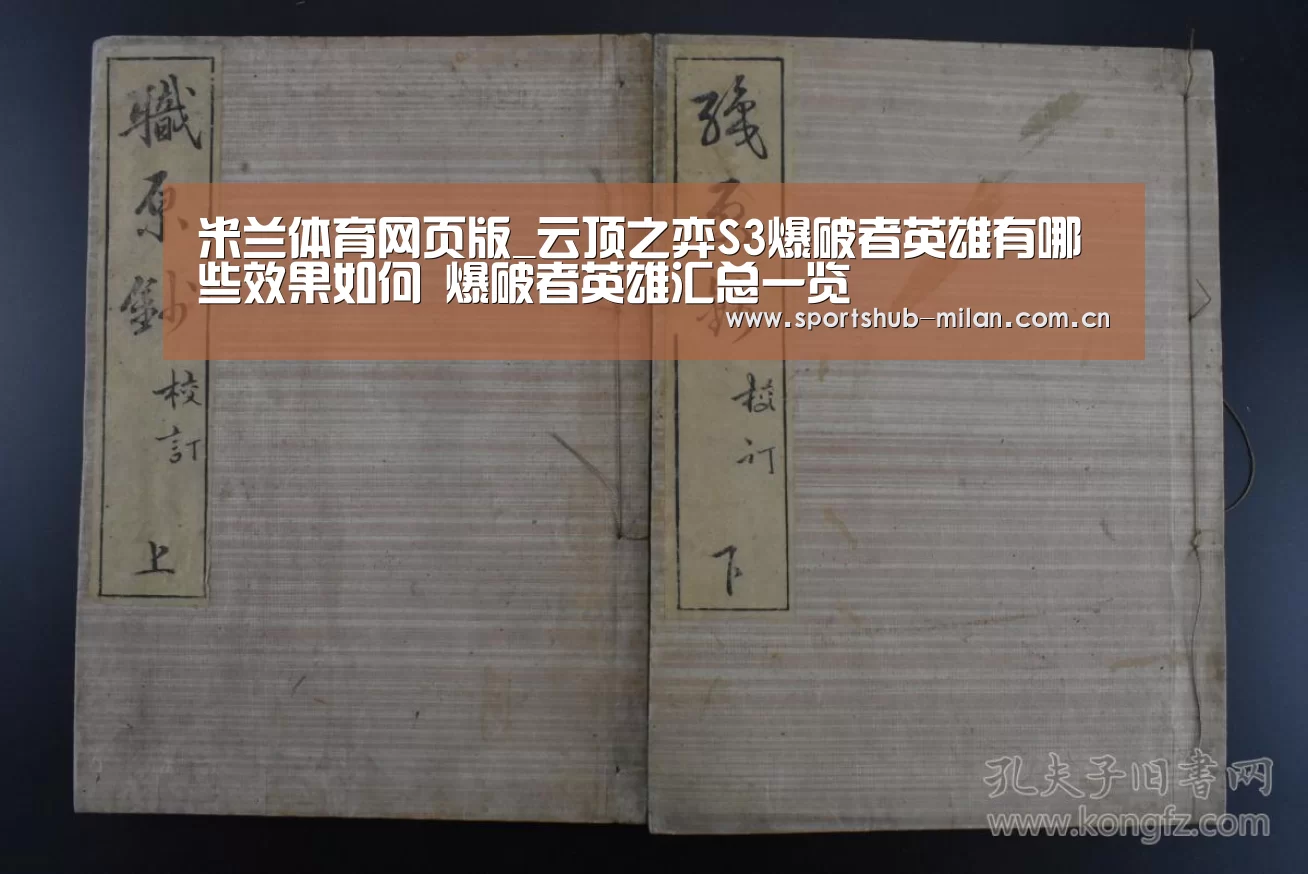 職原鈔
校訂
上
米兰体育网页版_云顶之弈S3爆破者英雄有哪
些效果如何 爆破者英雄汇总一览
www.sportshub-milan.com.cn
校訂
下
孔夫子旧书网
www.kongfz.com